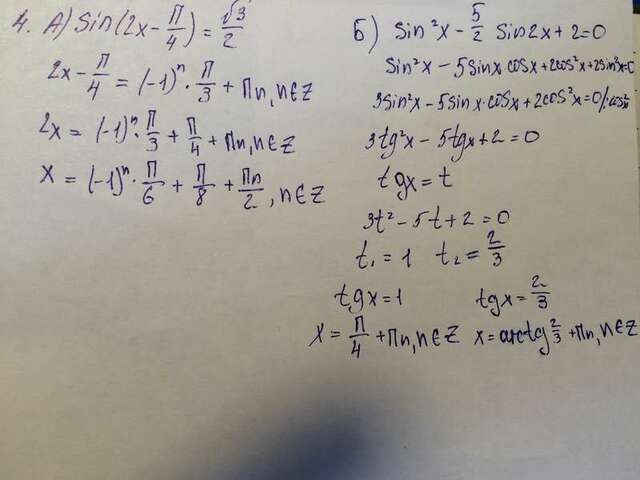 4. А) Sin(2x - П/4) = √3/2
2x - П/4 = (-1)ⁿ · П/3 + Пn, n∈Z
2x = (-1)ⁿ · П/3 + П/4 + Пn, n∈Z
x = (-1)ⁿ · П/6 + П/8 + Пn/2, n∈Z
Б) Sin²x - 5/2 Sin2x + 2 = 0
Sin²x - 5Sinx cosx + 2cos²x + 2Sin²x = 0
3Sin²x - 5Sinx·cosx + 2cos²x = 0 /:cos²x
3tg²x - 5tgx + 2 = 0
tgx = t
3t² - 5t + 2 = 0
t₁ = 1 t₂ = 2/3
tgx = 1 tgx = 2/3
x = П/4 + Пn, n∈Z x = arctg 2/3 + Пn, n∈Z